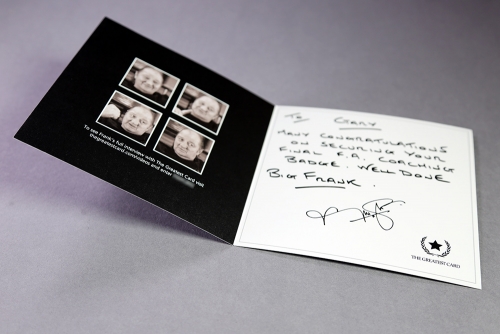 To see Frank's full interview with The Greatest Card visit
thegreatestcard.com/videos and enter
To GARY
MANY CONGRATULATIONS
ON SECURING YOUR
FINAL F.A. COACHING
BADGE. WELL DONE
BIG FRANK.
THE GREATEST CARD